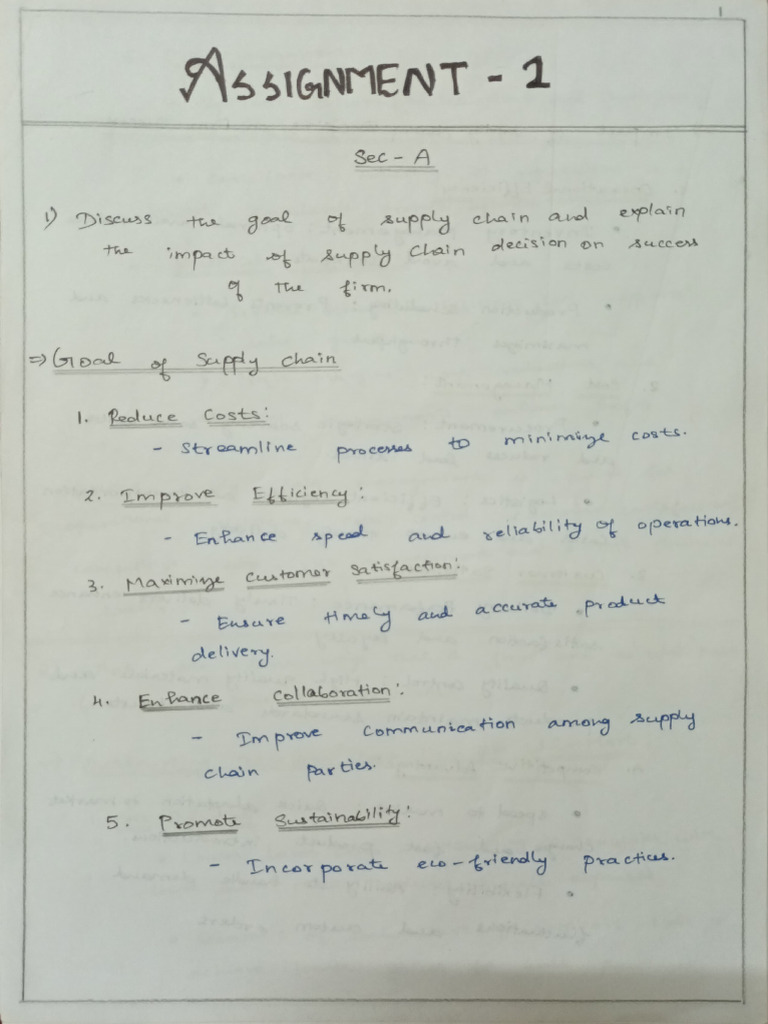 1
ASSIGNMENT - 1
Sec - A
1) Discuss the goal of supply chain and explain
the impact of supply chain decision on success
of the firm.
⇒ Goal of Supply chain
1. Reduce Costs:
- Streamline processes to minimize costs.
2. Improve Efficiency:
- Enhance speed and reliability of operations.
3. Maximize Customer Satisfaction:
- Ensure timely and accurate product
delivery.
4. Enhance Collaboration:
- Improve Communication among supply
chain parties.
5. Promote Sustainability:
- Incorporate eco-friendly practices.